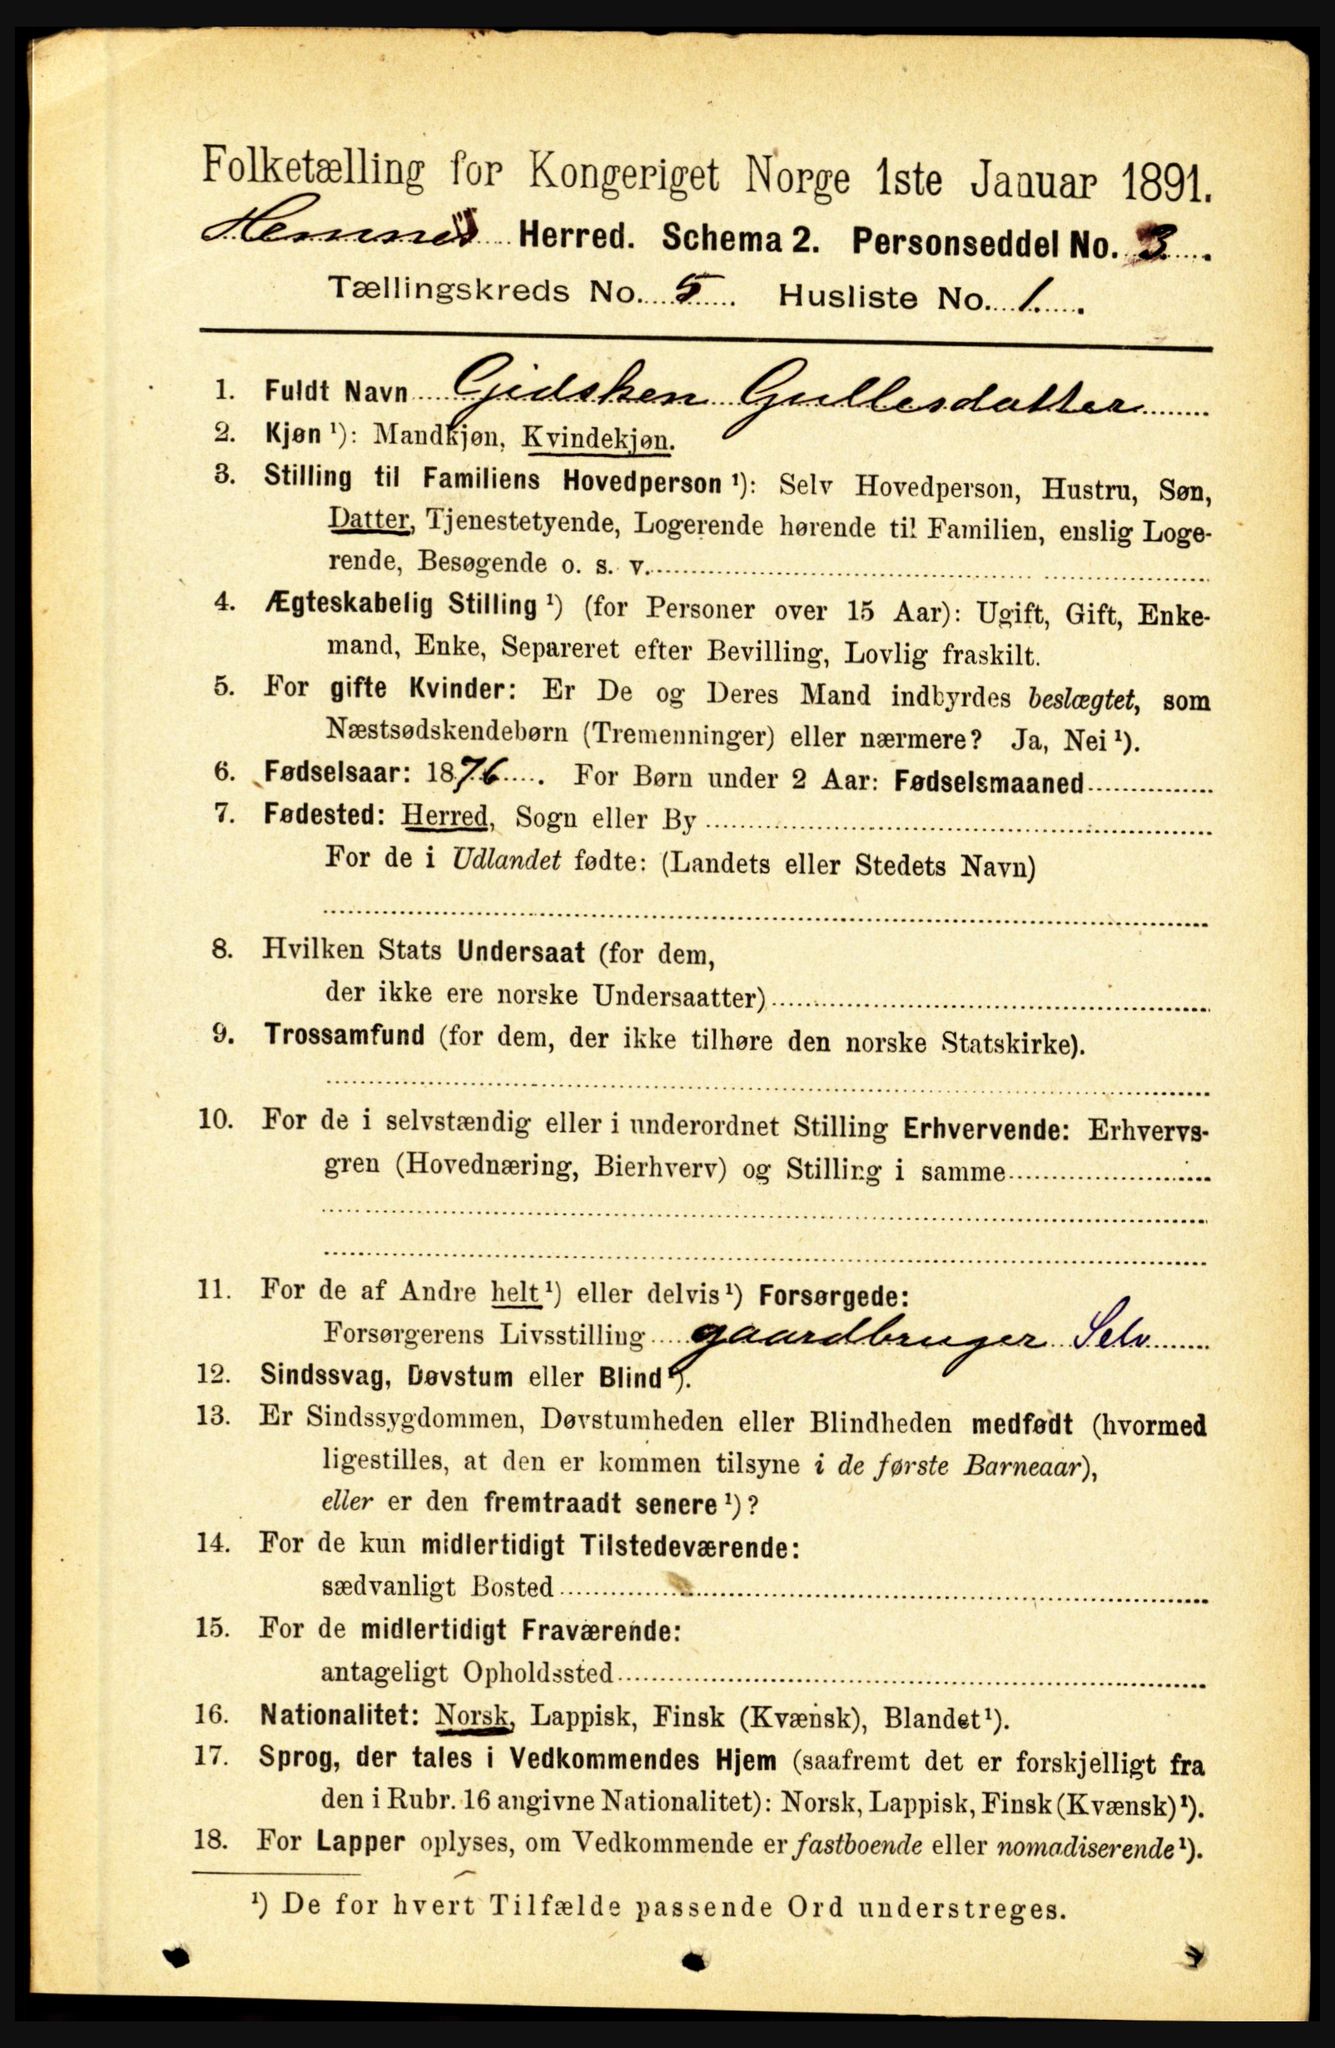 Folketælling for Kongeriget Norge 1ste Januar 1891.
Hemnes Herred. Schema 2. Personseddel No. 3.
Tællingskreds No. 5. Husliste No. 1.
1. Fuldt Navn Gidsken Gullesdatter
2. Kjøn ¹): Mandkjøn, Kvindekjøn.
3. Stilling til Familiens Hovedperson ¹): Selv Hovedperson, Hustru, Søn,
Datter, Tjenestetyende, Logerende hørende til Familien, enslig Loge-
rende, Besøgende o. s. v.
4. Ægteskabelig Stilling ¹) (for Personer over 15 Aar): Ugift, Gift, Enke-
mand, Enke, Separeret efter Bevilling, Lovlig fraskilt.
5. For gifte Kvinder: Er De og Deres Mand indbyrdes beslægtet, som
Næstsødskendebørn (Tremenninger) eller nærmere? Ja, Nei ¹).
6. Fødselsaar: 1876. For Børn under 2 Aar: Fødselsmaaned
7. Fødested: Herred, Sogn eller By
For de i Udlandet fødte: (Landets eller Stedets Navn)
8. Hvilken Stats Undersaat (for dem,
der ikke ere norske Undersaatter)
9. Trossamfund (for dem, der ikke tilhøre den norske Statskirke).
10. For de i selvstændig eller i underordnet Stilling Erhvervende: Erhvervs-
gren (Hovednæring, Bierhverv) og Stilling i samme
11. For de af Andre helt ¹) eller delvis ¹) Forsørgede:
Forsørgerens Livsstilling gaardbruger Selv
12. Sindssvag, Døvstum eller Blind ¹).
13. Er Sindssygdommen, Døvstumheden eller Blindheden medfødt (hvormed
ligestilles, at den er kommen tilsyne i de første Barneaar),
eller er den fremtraadt senere ¹)?
14. For de kun midlertidigt Tilstedeværende:
sædvanligt Bosted
15. For de midlertidigt Fraværende:
antageligt Opholdssted
16. Nationalitet: Norsk, Lappisk, Finsk (Kvænsk), Blandet ¹).
17. Sprog, der tales i Vedkommendes Hjem (saafremt det er forskjelligt fra
den i Rubr. 16 angivne Nationalitet): Norsk, Lappisk, Finsk (Kvænsk) ¹).
18. For Lapper oplyses, om Vedkommende er fastboende eller nomadiserende ¹).
¹) De for hvert Tilfælde passende Ord understreges.